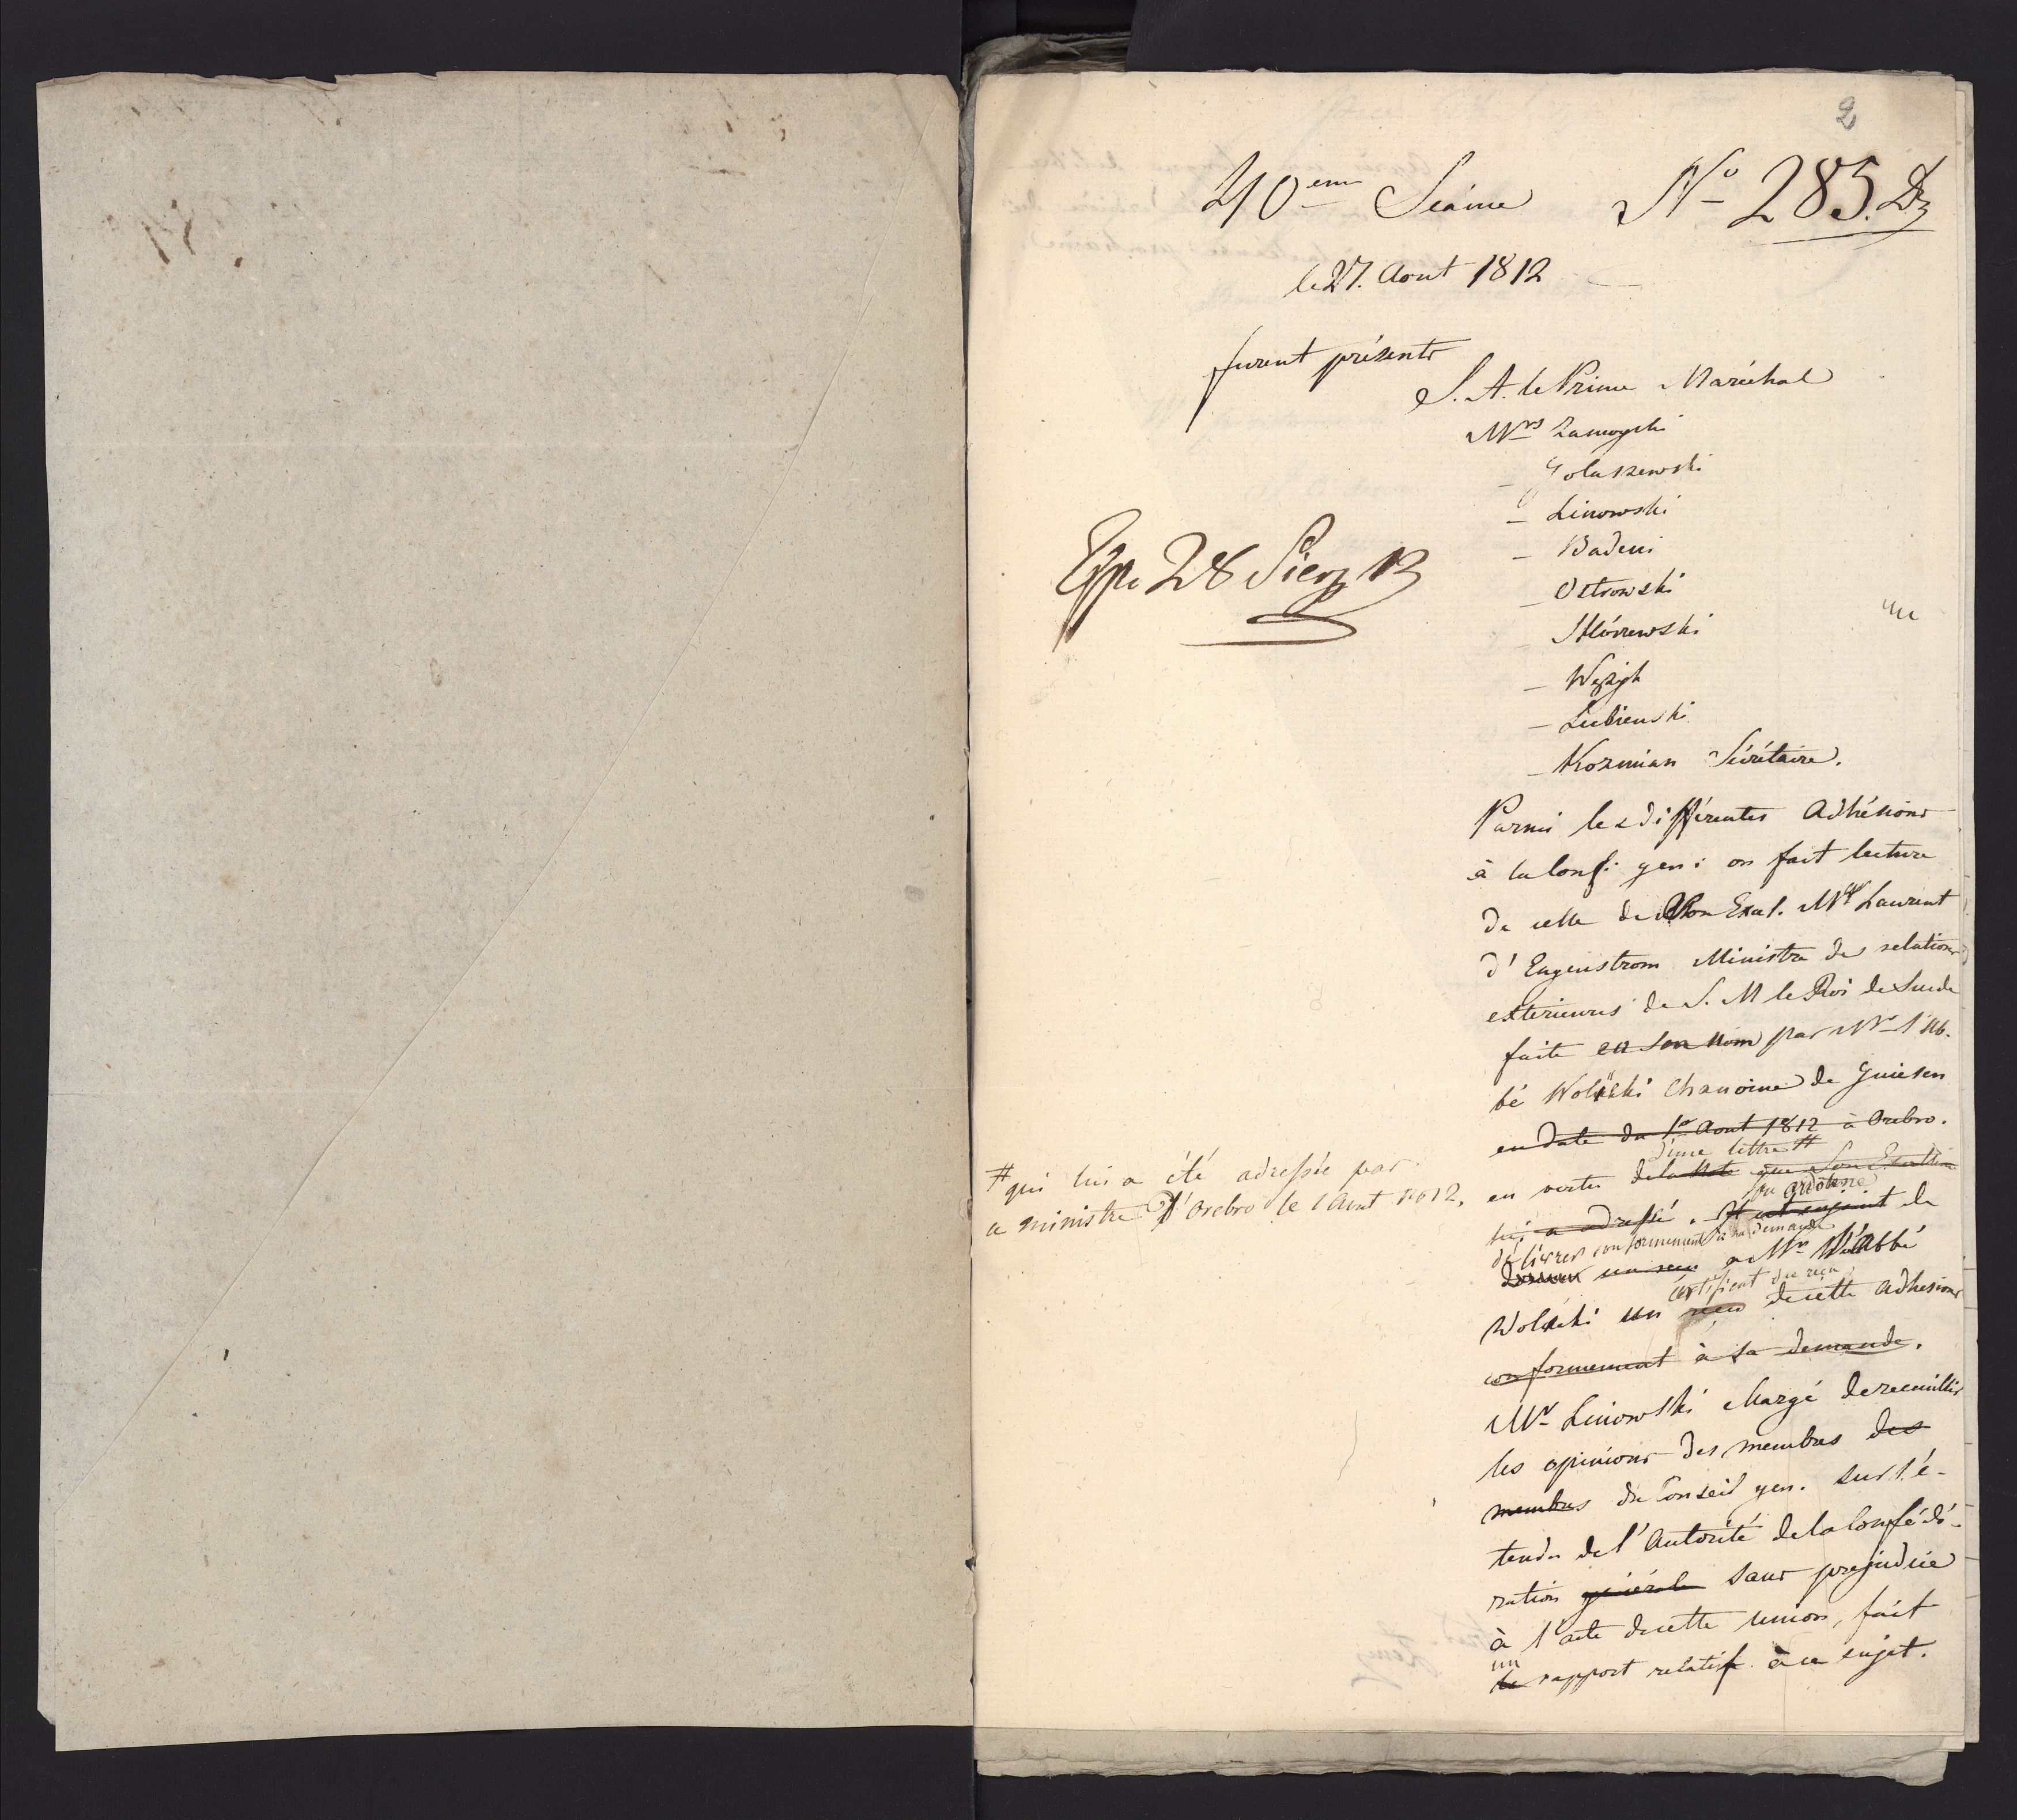 2
40eme Séance No 285. Dz
le 27. Aout 1812
furent présents
S. A. le Prince Maréchal
Mrs Zamoyski
- Golaszewski
- Linowski
- Badeni
- Ostrowski
- Skórzewski
- Wężyk
- Lubienski
- Kozmian Sécrétaire.
Exp. 28 Sierp 12
Parmi les différentes Adhésions
à la Conf: gen: on fait lecture
de celle de Son Exel. Mr Laurent
d'Engenstrom Ministre des relations
exterieures de S. M le Roi de Suede
faite en son nom par Mr l'Ab-
bé Wolicki Chanoine de Gniesen
en date du 1er Aout 1812 à Orebro.
d'une lettre #
en vertu de la Note que Son Excellence
# qui lui a été adressée par
ce ministre d'Orebro le 1 Aout 1812.
on ordonne
lui a adressé. Il est enjoint de
délivrer conformement à sa demande
donner un recu a Mr l'Abbé
certificat du recu
Wolicki un recu de cette adhesion
conformement à sa demande.
Mr Linowski chargé de recueillir
les opinions des membres des
membres du Conseil gen. sur l'é-
tendue de l'Autorité de la Confédé-
ration générale sans prejudice
à l'acte de cette union, fait
un
le rapport relatif à ce sujet.